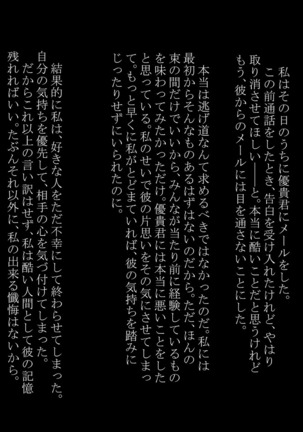 私はその日のうちに優貴君にメールをした。
この前通話をしたとき、告白を受け入れたけれど、やはり
取り消させてほしい――と。本当に酷いことだと思うけれど
もう、彼からのメールには目を通さないことにした。
本当は逃げ道なんて求めるべきではなかったのだ。私には
最初からそんなものあるはずはないのだから。ただ、ほんの
束の間だけでいいから、みんなが当たり前に経験しているもの
を味わってみたかっただけ。優貴君には本当に悪いことをした
と思っている。私のせいで彼の片思いをその気にさせてしまっ
て。もっと早くに私がとどまっていれば、彼の気持ちを踏みに
じったりせずにいられたのに。
結果的に私は、好きな人をただ不幸にして終わらせてしまった。
自分の気持ちを優先して、相手の心を気づ付けてしまった。
だからこれ以上の言い訳はせず、私は酷い人間として彼の記憶
に残れればいい。たぶんそれ以外に、私の出来る懺悔はないから。